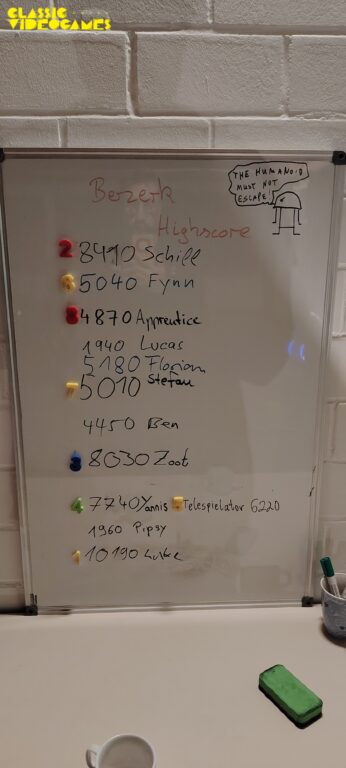 CLASSIC
VIDEOGAMES
THE HUMANOID
MUST NOT
ESCAPE!
Berzerk
Highscore
2 8490 Schill
5040 Fynn
8 4870 Apprentice
1940 Lucas
5180 Florian
7 5010 Stefan
4450 Ben
3 8030 Zoot
4 7740 Yannis Telespielator 6220
1960 Pipsy
1 10190